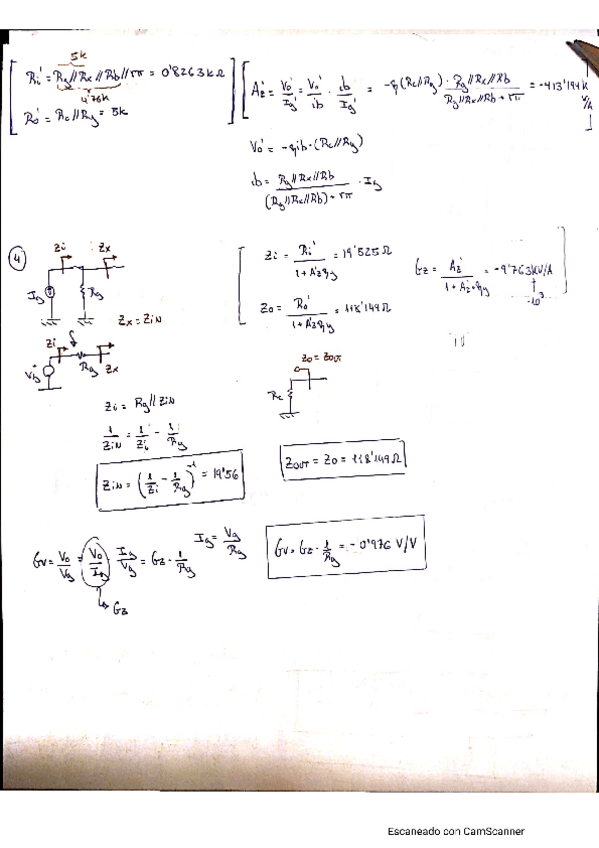 5k
Ri' = Rg//Rx//Rb//rπ = 0'8263kΩ
4'76k
Ro' = Rc//Ry = 5k
Az' = Vo'/Ig' = Vo'/ib · ib/Ig' = -β(Rc//Ry) · Rg//Rx//Rb / Rg//Rx//Rb + rπ = -413'194 k V/A
Vo' = -βib·(Rc//Ry)
ib = Rg//Rx//Rb / (Rg//Rx//Rb)+rπ · Ig
4
Zi Zx
Ig Rg
Zx = Zin
Zi = Ri' / 1+Az'βy = 19'525 Ω
Zo = Ro' / 1+Az'βy = 118'149Ω
Gz = Az' / 1+Az'·βy = -9'763 kV/A
-10³
Zi
Vg Rg Zx
Zo = Zout
Rc
Zi = Rg//Zin
1/Zin = 1/Zi - 1/Rg
Zin = (1/Zi - 1/Rg)⁻¹ = 19'56
Zout = Zo = 118'149Ω
Gv = Vo/Vg = Vo/Ig · Ig/Vg = Gz · 1/Rg
Ig = Vg/Rg
Gv = Gz · 1/Rg = -0'976 V/V
Gz
Escaneado con CamScanner